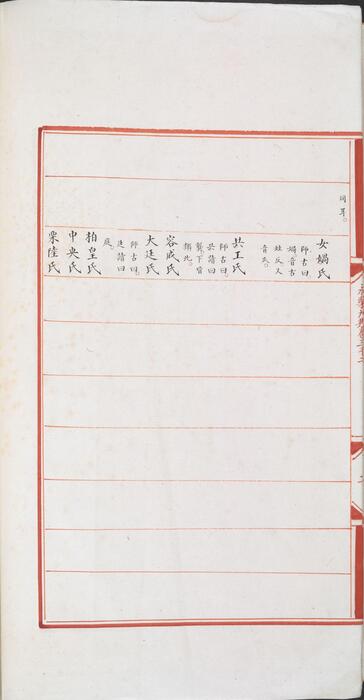 同耳。
女媧氏
師古曰
媧音古
蛙反又
音瓜。
共工氏
師古曰
共讀曰
龔下皆
類此。
容成氏
大廷氏
師古曰
廷讀曰
庭。
柏皇氏
中央氏
栗陸氏